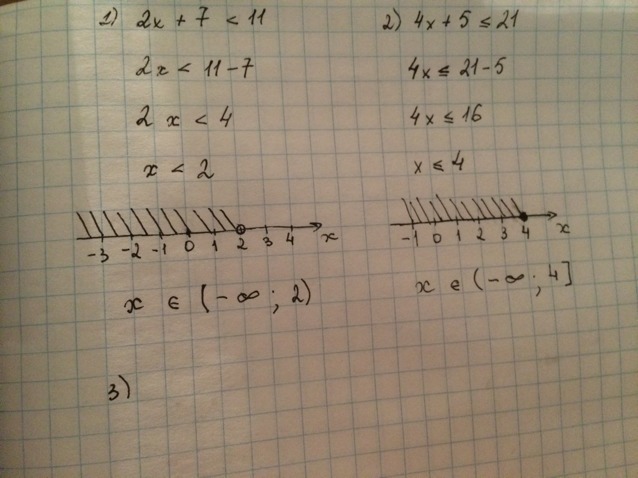 1) 2x + 7 < 11
2x < 11 - 7
2x < 4
x < 2
-3 -2 -1 0 1 2 3 4 x
x ∈ (-∞; 2)
2) 4x + 5 ≤ 21
4x ≤ 21 - 5
4x ≤ 16
x ≤ 4
-1 0 1 2 3 4 x
x ∈ (-∞; 4]
3)